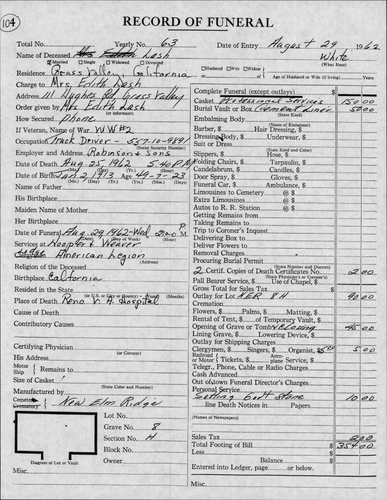 104
RECORD OF FUNERAL
Total No. Yearly No. 63 Date of Entry August 29 1962
Name of Deceased Mrs Edith Lash White
Married Single Widowed Divorced (What Race)
Residence Grass Valley, California Husband Wife Widow
Charge to Mrs Edith Lash Age of Husband or Wife (if living)
Address 111 Hughes Rd Grass Valley
Order given by Mrs Edith Lash
How Secured Phone
If Veteran, Name of War WW#2
(Social Security Number)
Occupation Truck Driver - 557-10-9891
Employer and Address Robinson & Sons
Date of Death Aug 25, 1962 5:40 P M
Date of Birth Jan 2 1913 Age 49-7-23
Name of Father
His Birthplace
Maiden Name of Mother
Her Birthplace
Date of Funeral Aug 29 1962-Wed 2:00 P. M.
Services at Hooper & Weaver
American Legion
Religion of the Deceased
Birthplace California
Resided in the State
Place of Death Reno V. A. Hospital
Cause of Death
Contributory Causes
Certifying Physician
(or Coroner)
His Address
Motor
Ship Remains to
Size of Casket
(State Color and Number)
Manufactured by
Cemetery New Elm Ridge
Lot No.
Grave No. 8
Section No. H
Block No.
Owner
Diagram of Lot or Vault
Misc.
Complete Funeral (except outlays) $
Casket Professional Services 150 00
Burial Vault or Box Cement Liner 50 00
(State Kind)
Embalming Body
(Name of Embalmer)
Barber, $ Hair Dressing, $
Dressing Body, $ Underwear, $
Suit or Dress
(State Kind and Color)
Slippers, $ Hose, $
Folding Chairs, $ Tarpaulin, $
Candelabrum, $ Candles, $
Door Spray, $ Gloves, $
Funeral Car, $ Ambulance, $
Limousines to Cemetery @ $
Extra Limousines @ $
Autos to R. R. Station @ $
Getting Remains
Taking Remains to
Trip to Coroner's Inquest
Delivering Box to
Deliver Flowers to
Removal Charges
Procuring Burial Permit
(State Number and District)
2 Certif. Copies of Death Certificates No. 2 00
(State Physician's or Coroner's)
Pall Bearer Service, Use of Chapel, $
Gross Total for Sales Tax $
Outlay for Lot 90 00
Cremation
Flowers, $ Palms, $ Matting, $
Rental of Tent, $ of Temporary Vault, $
Opening of Grave or Tomb & closing 45 00
Lining Grave, $ Lowering Device, $
Outlay for Shipping Charges
Clergymen, $ Singers, $ Organist, 5.00 5 00
Railroad Aero-
or Motor Tickets, $ plane Service, $
Telegr., Phone, Cable or Radio Charges
Cash Advanced
Out of town Funeral Director's Charges
Personal Service
Setting Govt Stone 10 00
line Death Notices in Papers
(Names of Newspapers)
Sales Tax 2 00
Total Footing of Bill $ 354 00
Less
Balance $
Entered into Ledger, page or below.
Misc.